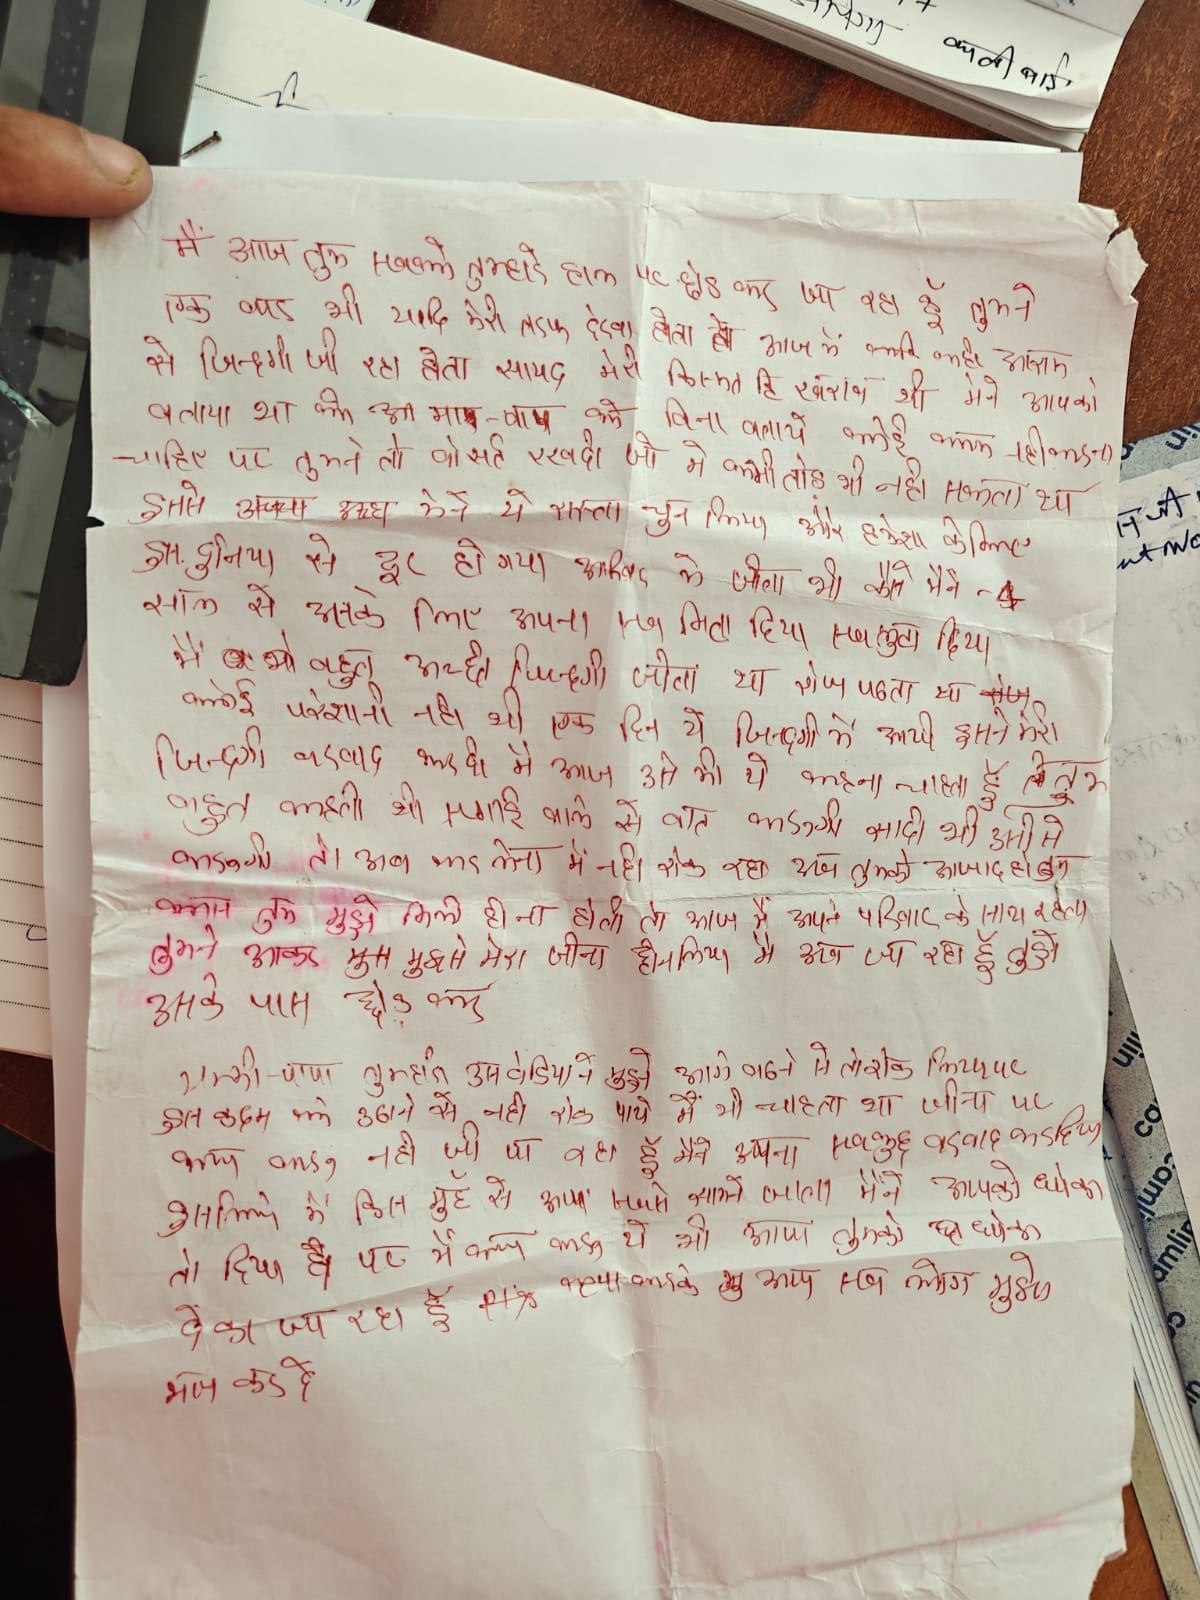 काली बाई
मैं आज तुम सबको तुम्हारे हाल पर छोड कर जा रहा हूँ तुमने
एक बार भी यादि मेरी तरफ देखा होता तो आज में कही आराम
से जिन्दगी जी रहा होता सायद मेरी किस्मत हि खराब थी मेने आपको
बताया था की माप-बाप को बिना बताये कोई काम नहीं करना
चाहिए पर तुमने तो वो सर्त रखदी जो मे कभी तोड भी नही सकता था
इससे अच्छा मेने ये रास्ता चुन लिया और हमेशा के लिए
इस दुनिया से दूर हो गया आखिर मे जीता भी कैसे मैने 4
साल से उसके लिए अपना सब मिटा दिया सब लुटा दिया
मैं भी बहुत अच्छी जिन्दगी जीता था रोज पढता था
कोई परेशानी नही थी एक दिन ये जिन्दगी में आयी इसने मेरी
जिन्दगी बरबाद करदी मै आज उसे भी ये कहना चाहता हूँ तुम
बहुत कहती थी सगाई वाले से बात करुगी सादी भी उसी से
करुगी तो अब कर लेना में नही रोक रहा अब तुमको आजाद हो तुम
काश तुम मुझे मिली ही ना होती तो आज मैं अपने परिवार के साथ रहता
तुमने आकर मुझसे मेरा जीना छीन लिया मै अब जा रहा हूँ तुझे
उसके पास छोड़ कर
मम्मी-पापा तुम्हारी उस बेडिया ने मुझे आगे बढने से तो रोक लिया पर
इस कदम को उठाने से नही रोक पाये मैं भी चाहता था जीना पर
क्या करु नही जी पा रहा हूँ मैने अपना सबकुछ बरबाद कर दिया
इसलिये में किस मुहँ से आपके सामने जाता मैंने आपको धोका
तो दिया है पर में क्या करु ये भी आज तुमको धोका
दे का जा रहा हूँ कृपा करके आप सब लोग मुझे
माफ कर दे
amlin
com